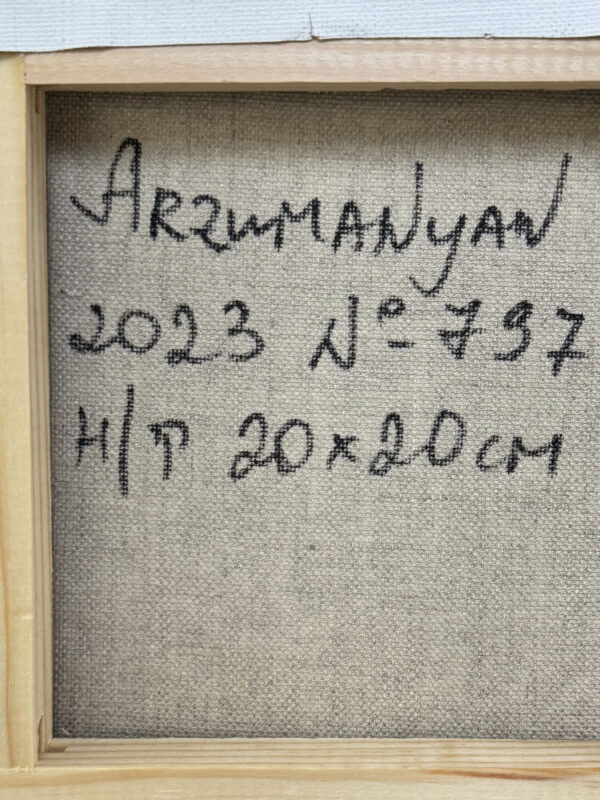 ARZUMANYAN
2023 № 797
H/T 20x20 cм